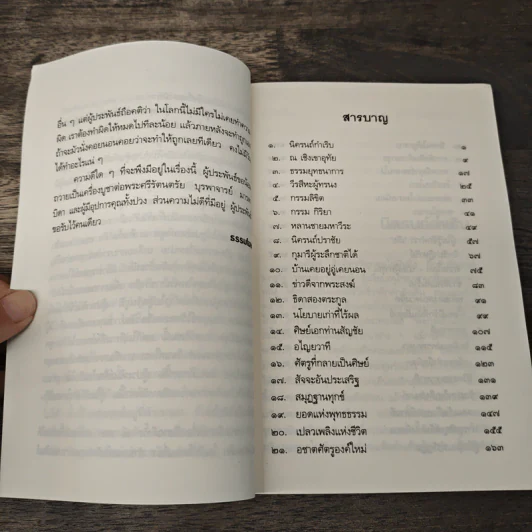 อื่น ๆ แต่ผู้ประพันธ์ถือคติว่า ในโลกนี้ไม่มีใครไม่เคยทำความ
ผิด เราต้องทำผิดให้หมดไปทีละน้อย แล้วภายหลังจะทำถูก
ถ้าจะมัวนั่งคอยนอนคอยว่าจะทำให้ถูกเลยทีเดียว คงไม่
ได้ทำอะไรแน่ ๆ
ความดีใด ๆ ที่จะพึงมีอยู่ในเรื่องนี้ ผู้ประพันธ์ขอ
ถวายเป็นเครื่องบูชาต่อพระศรีรัตนตรัย บูรพาจารย์
บิดา และผู้มีอุปการคุณทั้งปวง ส่วนความไม่ดีที่มีอยู่ ผู้ประพันธ์
ขอรับไว้คนเดียว
สารบาญ
๑. นิครนถ์กำเริบ ๑
๒. ณ เชิงเขาอุทัย ๙
๓. ธรรมยุทธนาการ ๑๗
๔. วีรสีหะผู้ทรนง ๒๕
๕. กรรมลิขิต ๓๓
๖. กรรม กิริยา ๔๑
๗. หลานชายมหาวีระ ๔๙
๘. นิครนถ์ปราชัย ๕๗
๙. กุมารีผู้ระลึกชาติได้ ๖๗
๑๐. บ้านเคยอยู่อู่เคยนอน ๗๕
๑๑. ข่าวดีจากพระสงฆ์ ๘๓
๑๒. ธิดาสองตระกูล ๙๑
๑๓. นโยบายเก่าที่ไร้ผล ๙๙
๑๔. ศิษย์เอกท่านสัญชัย ๑๐๗
๑๕. อไญยวาที ๑๑๕
๑๖. ศัตรูที่กลายเป็นศิษย์ ๑๒๓
๑๗. สัจจะอันประเสริฐ ๑๓๑
๑๘. สมุฏฐานทุกข์ ๑๓๙
๑๙. ยอดแห่งพุทธธรรม ๑๔๗
๒๐. เปลวเพลิงแห่งชีวิต ๑๕๕
๒๑. อชาตศัตรูองค์ใหม่ ๑๖๓